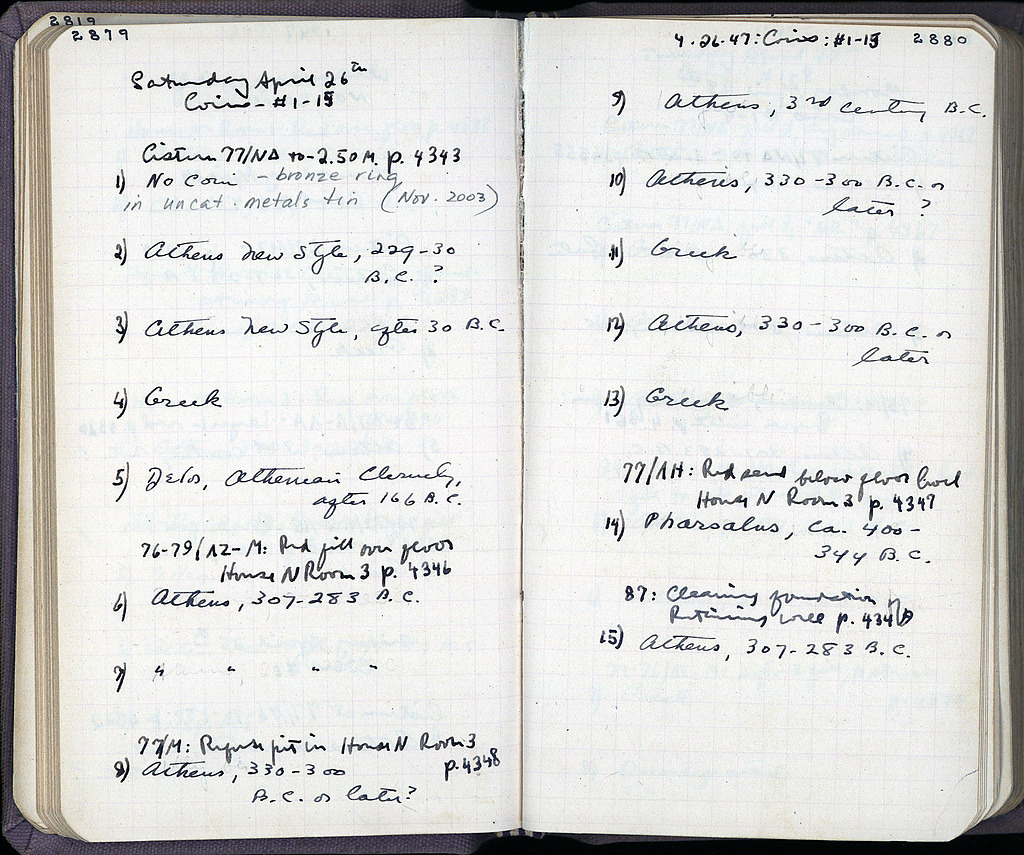 2819
2879
Saturday April 26th
Coins - #1-15
Cistern 77/NΔ to -2.50 M. p. 4343
1) No Coin - bronze ring
in uncat. metals tin (Nov. 2003)
2) Athens New Style, 229-30
B.C. ?
3) Athens New Style, after 30 B.C.
4) Greek
5) Delos, Athenian Cleruchy,
after 166 B.C.
76-79/ΛZ-M: Red fill over floor
House N Room 3 p. 4346
6) Athens, 307-283 B.C.
7) " " " "
77/M: Refuse pit in House N Room 3
p. 4348
8) Athens, 330-300
B.C. or later?
4.26.47: Coins: #1-15 2880
9) Athens, 3rd century B.C.
10) Athens, 330-300 B.C. or
later ?
11) Greek
12) Athens, 330-300 B.C. or
later
13) Greek
77/ΛH: Red sand below floor level
House N Room 3 p. 4347
14) Pharsalus, ca. 400-
344 B.C.
87: Cleaning foundation of
Retaining wall p.
15) Athens, 307-283 B.C.